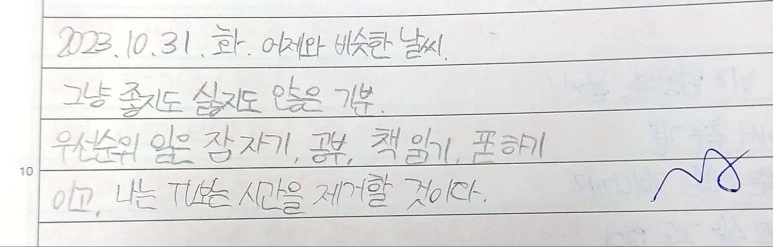 2023.10.31. 화. 어제와 비슷한 날씨.
그냥 좋지도 싫지도 않은 기분.
우선순위 일은 잠 자기, 공부, 책 읽기, 폰 하기
10
이고, 나는 TV보는 시간을 제거할 것이다.